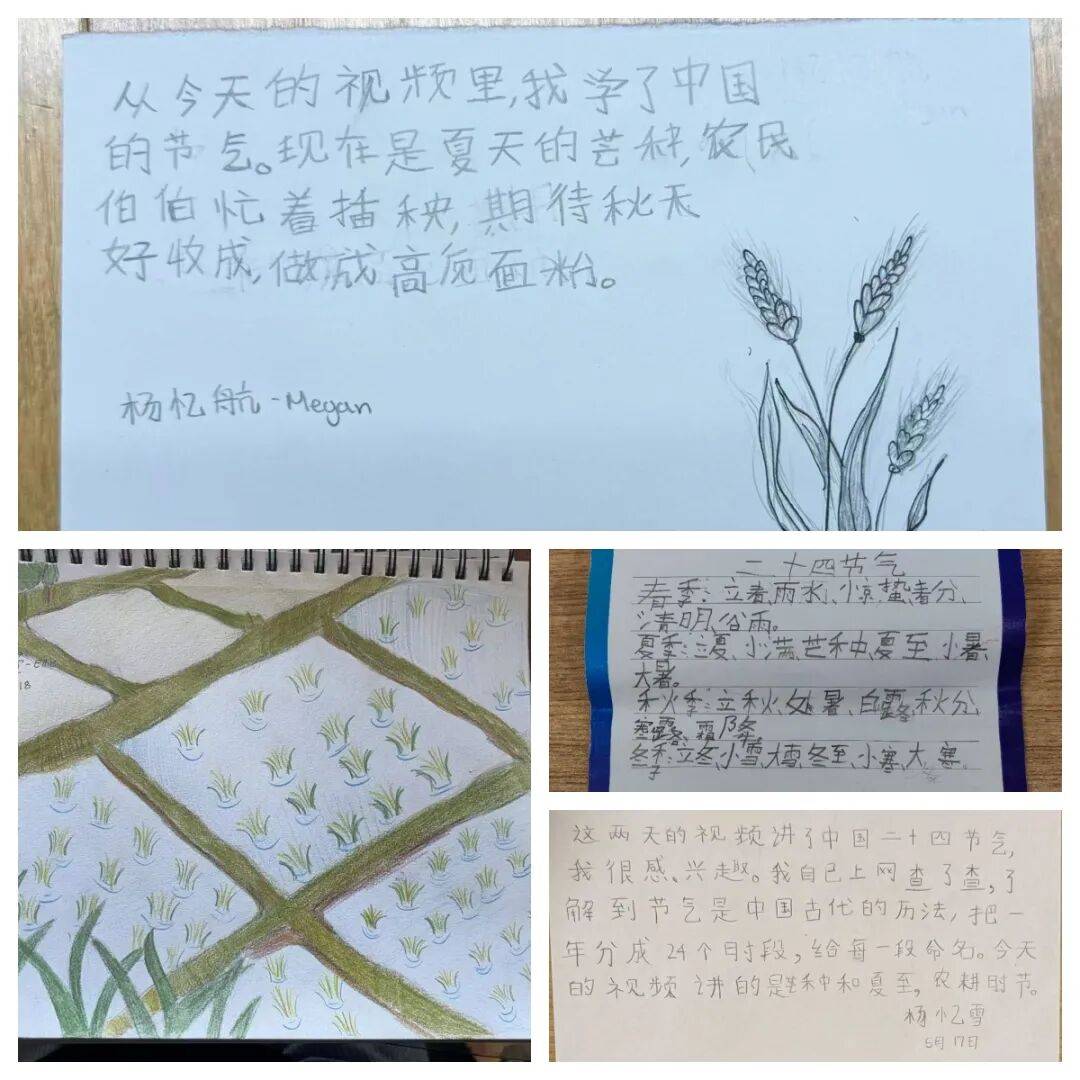 从今天的视频里,我学了中国
的节气。现在是夏天的芒种,农民
伯伯忙着插秧,期待秋天
好收成,做成高质面粉。
杨忆航-Megan
18
二十四节气
春季:立春、雨水、惊蛰、春分、
清明、谷雨。
夏季:立夏、小满、芒种、夏至、小暑、
大暑。
秋季:立秋、处暑、白露、秋分、
寒露、霜降。
冬季:立冬、小雪、大雪、冬至、小寒、大寒。
这两天的视频讲了中国二十四节气,
我很感兴趣。我自己上网查了查,了
解到节气是中国古代的历法,把一
年分成24个时段,给每一段命名。今天
的视频讲的是芒种和夏至,农耕时节。
杨忆雪
6月17日